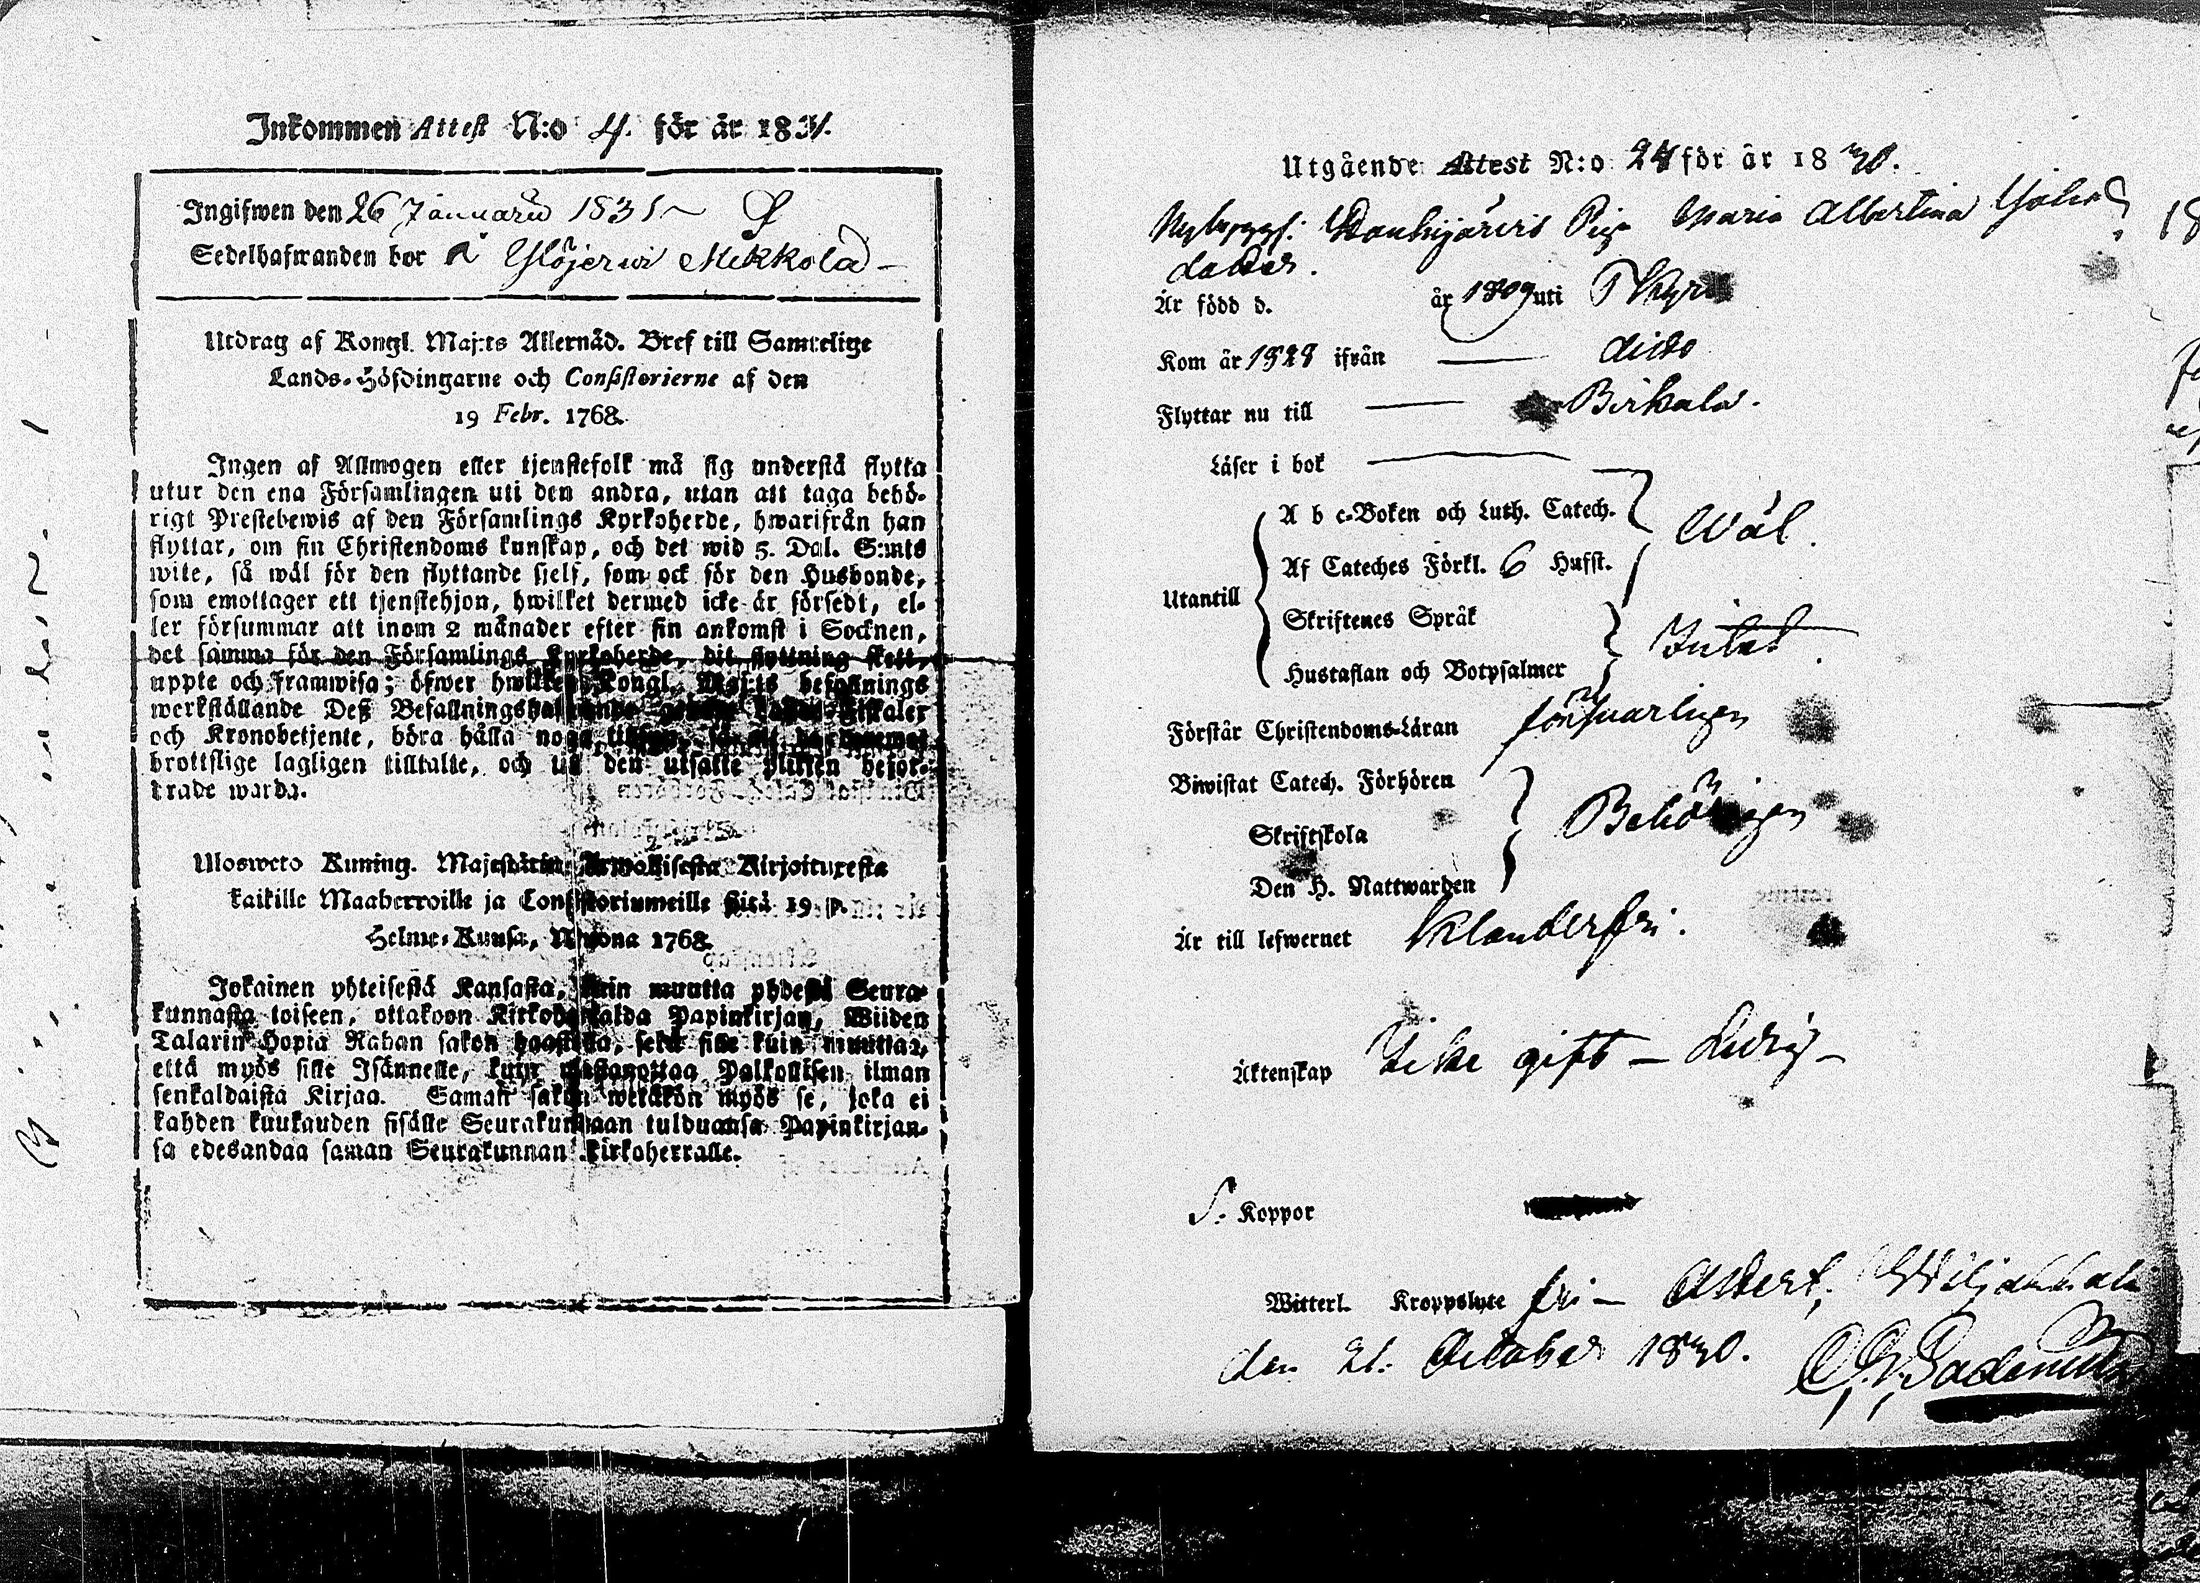 Inkommen Attest N:o 4. för år 1831.
Ingifwen den 26 Januarii 1831
Sedelhafwanden bor å Ylöjerwi Mikkola
Utdrag af Kongl. Maj:ts Allernåd. Bref till Samtelige
Lands-Höfdingarne och Consistorierne af den
19 Febr. 1768.
Ingen af Allmogen eller tjenstefolk må sig understå flytta
utur den ena Församlingen uti den andra, utan att taga behö-
rigt Prestebewis af den Församlings Kyrkoherde, hwarifrån han
flyttar, om sin Christendoms kunskap, och det wid 5. Dal. S:mts
wite, så wäl för den flyttande sielf, som ock för den Husbonde,
som emottager ett tjenstehjon, hwilket dermed icke är försedt, el-
ler försummar att inom 2 månader efter sin ankomst i Socknen,
det samma för den Församlings Kyrkoherde, dit flyttning skett,
uppte och framwisa; öfwer hwilken Kongl. Maj:ts befallnings
werkställande Deß Befallningshafwande
och Kronobetjente, böra hålla noga
brottslige lagligen tilltalte, och til den utsatte plikten beför-
drade warda.
Ulosweto Kuning. Majestätin Armollisesta Kirjoituxesta
kaikille Maaherroille ja Consistoriumeille siitä 19 p.
Helme-Kuusa, Wuonna 1768.
Jokainen yhteisestä Kansasta, kuin muutta yhdestä Seura-
kunnasta toiseen, ottakoon Kirkoherralda Papinkirjan, Wiiden
Talarin Hopia Rahan sakon haastolla, sekä sille kuin muuttaa,
että myös sille Isännelle, kuin wastanottaa Palkollisen ilman
senkaldaista Kirjaa. Saman sakon wetäkön myös se, joka ei
kahden kuukauden sisälle Seurakundaan tulduansa Papinkirjan-
sa edesandaa saman Seurakunnan kirkoherralle.
Utgående Attest N:o 24 för år 1830.
Pig. Maria Albertina
dotter.
Är född d. år 1809 uti TKyro
Kom år 1828 ifrån dito
Flyttar nu till Birkala.
Läser i bok
A b c-Boken och Luth. Catech. Wäl.
Utantill
Af Cateches Förkl. 6 Hufst.
Skriftenes Språk
Hustaflan och Botpsalmer Intet.
Förstår Christendoms-Läran försvarligen
Biwistat Catech. Förhören
Skriftskola Behörigen
Den H. Nattwarden
Är till lefwernet Klanderfri.
Äktenskap Icke gift - Ledig -
S. Koppor
Witterl. Kroppslyte fri -
den 21. October 1830.